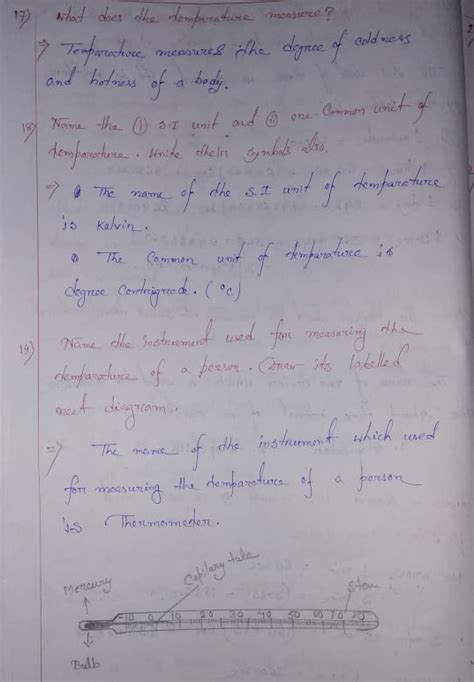 17) What does the temparature measure?
⇒ Temparature measures the degree of coldness
and hotness of a body.
18) Name the ① S.I unit and ② one Common unit of
temparature. Write their symbols also.
⇒ The name of the S.I unit of temparature
is Kelvin.
The Common unit of temparature is
degree Centrigrade. (°c)
19) Name the instrument used for measuring the
temparature of a person. Draw its labelled
neat diagram.
⇒ The name of the instrument which used
for measuring the temparature of a person
is Thermometer.
Mercury Capilary tube Stem
-10 0 10 20 30 40 50 60 70 80
Bulb